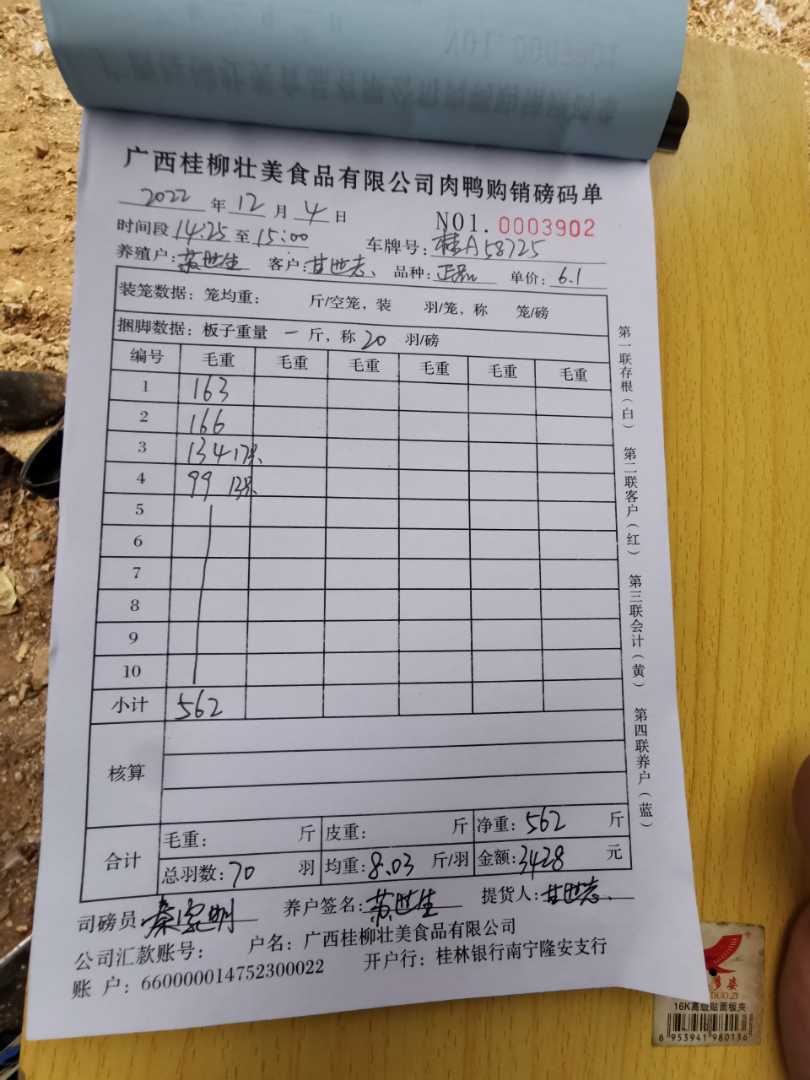 广西桂柳壮美食品有限公司肉鸭购销磅码单
2022 年 12 月 4 日 NO1. 0003902
时间段 14:25 至 15:00 车牌号: 桂A58725
养殖户: 苏世生 客户: 甘世志、 品种: 正品 单价: 6.1
装笼数据: 笼均重: 斤/空笼, 装 羽/笼, 称 笼/磅
捆脚数据: 板子重量 一 斤, 称 20 羽/磅
编号 毛重 毛重 毛重 毛重 毛重 毛重
1 163
2 166
3 134 17只、
4 99 13只、
5
6
7
8
9
10
小计 562
核算
合计 毛重: 斤 皮重: 斤 净重: 562 斤
总羽数: 70 羽 均重: 8.03 斤/羽 金额: 3428 元
司磅员: 秦家明 养户签名: 苏世生 提货人: 甘世志、
公司汇款账号: 户名: 广西桂柳壮美食品有限公司
账 户: 660000014752300022 开户行: 桂林银行南宁隆安支行
第一联存根(白) 第二联客户(红) 第三联会计(黄) 第四联养户(蓝)
16K高级贴面板夹
6 953941 980136